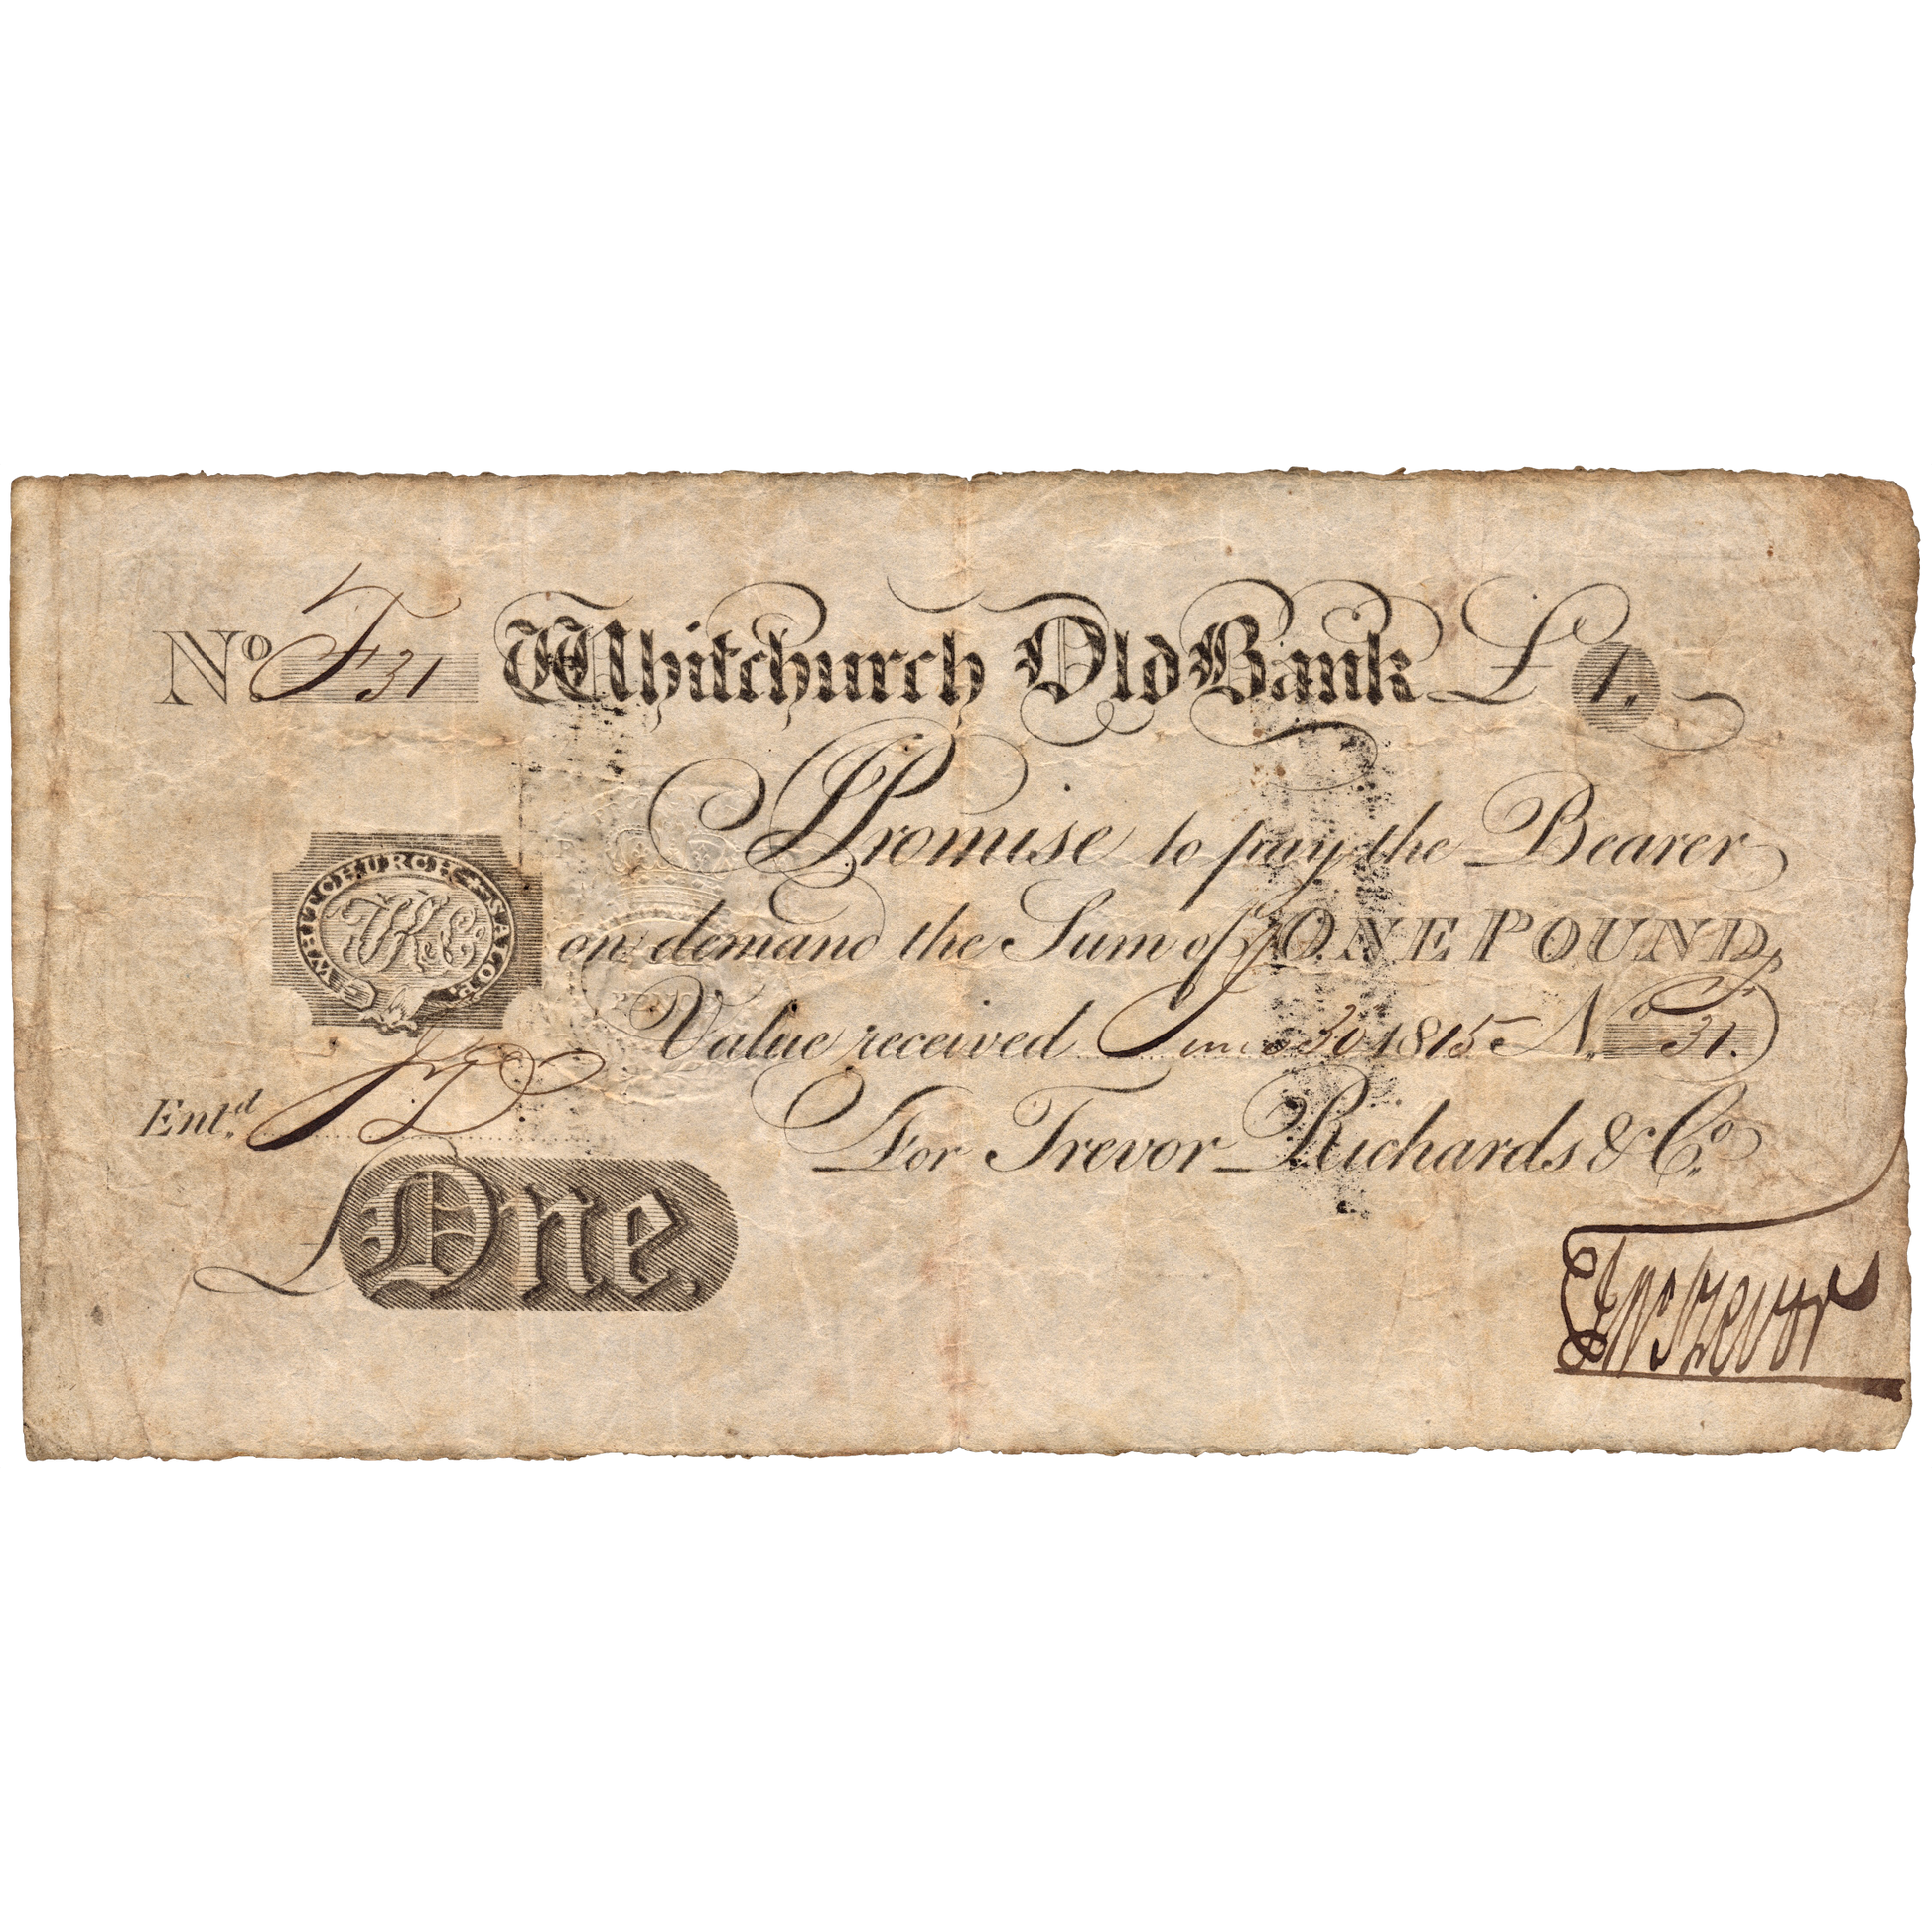 No F 31 Whitchurch Old Bank £1.
I Promise to pay the Bearer
on demand the Sum of ONE POUND,
WHITCHURCH SALOP.
Value received June 30 1815 No F 31.
Entd.
For Trevor Richards & Co.
£One.
Trevor